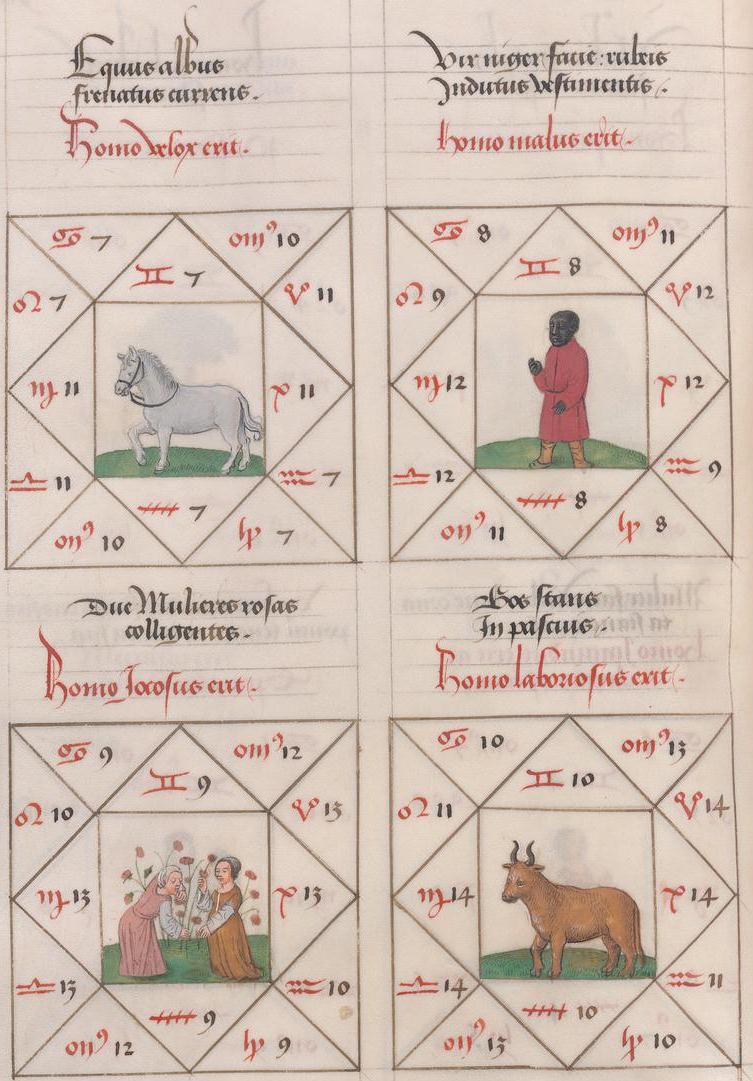 Equus albus
frenatus currens.
Homo velox erit.
♋ 7
omꝰ 10
♊ 7
♌ 7
♈ 11
♍ 11
♓ 11
♎ 11
♒ 7
♐ 7
omꝰ 10
♑ 7
Vir niger facie: rubeis
Indutus vestimentis.
homo malus erit.
♋ 8
omꝰ 11
♊ 8
♌ 9
♈ 12
♍ 12
♓ 12
♎ 12
♒ 9
♐ 8
omꝰ 11
♑ 8
Due Mulieres rosas
colligentes.
Homo Jocosus erit.
♋ 9
omꝰ 12
♊ 9
♌ 10
♈ 13
♍ 13
♓ 13
♎ 13
♒ 10
♐ 9
omꝰ 12
♑ 9
Bos stans
In pascuis.
Homo laboriosus erit.
♋ 10
omꝰ 13
♊ 10
♌ 11
♈ 14
♍ 14
♓ 14
♎ 14
♒ 11
♐ 10
omꝰ 13
♑ 10